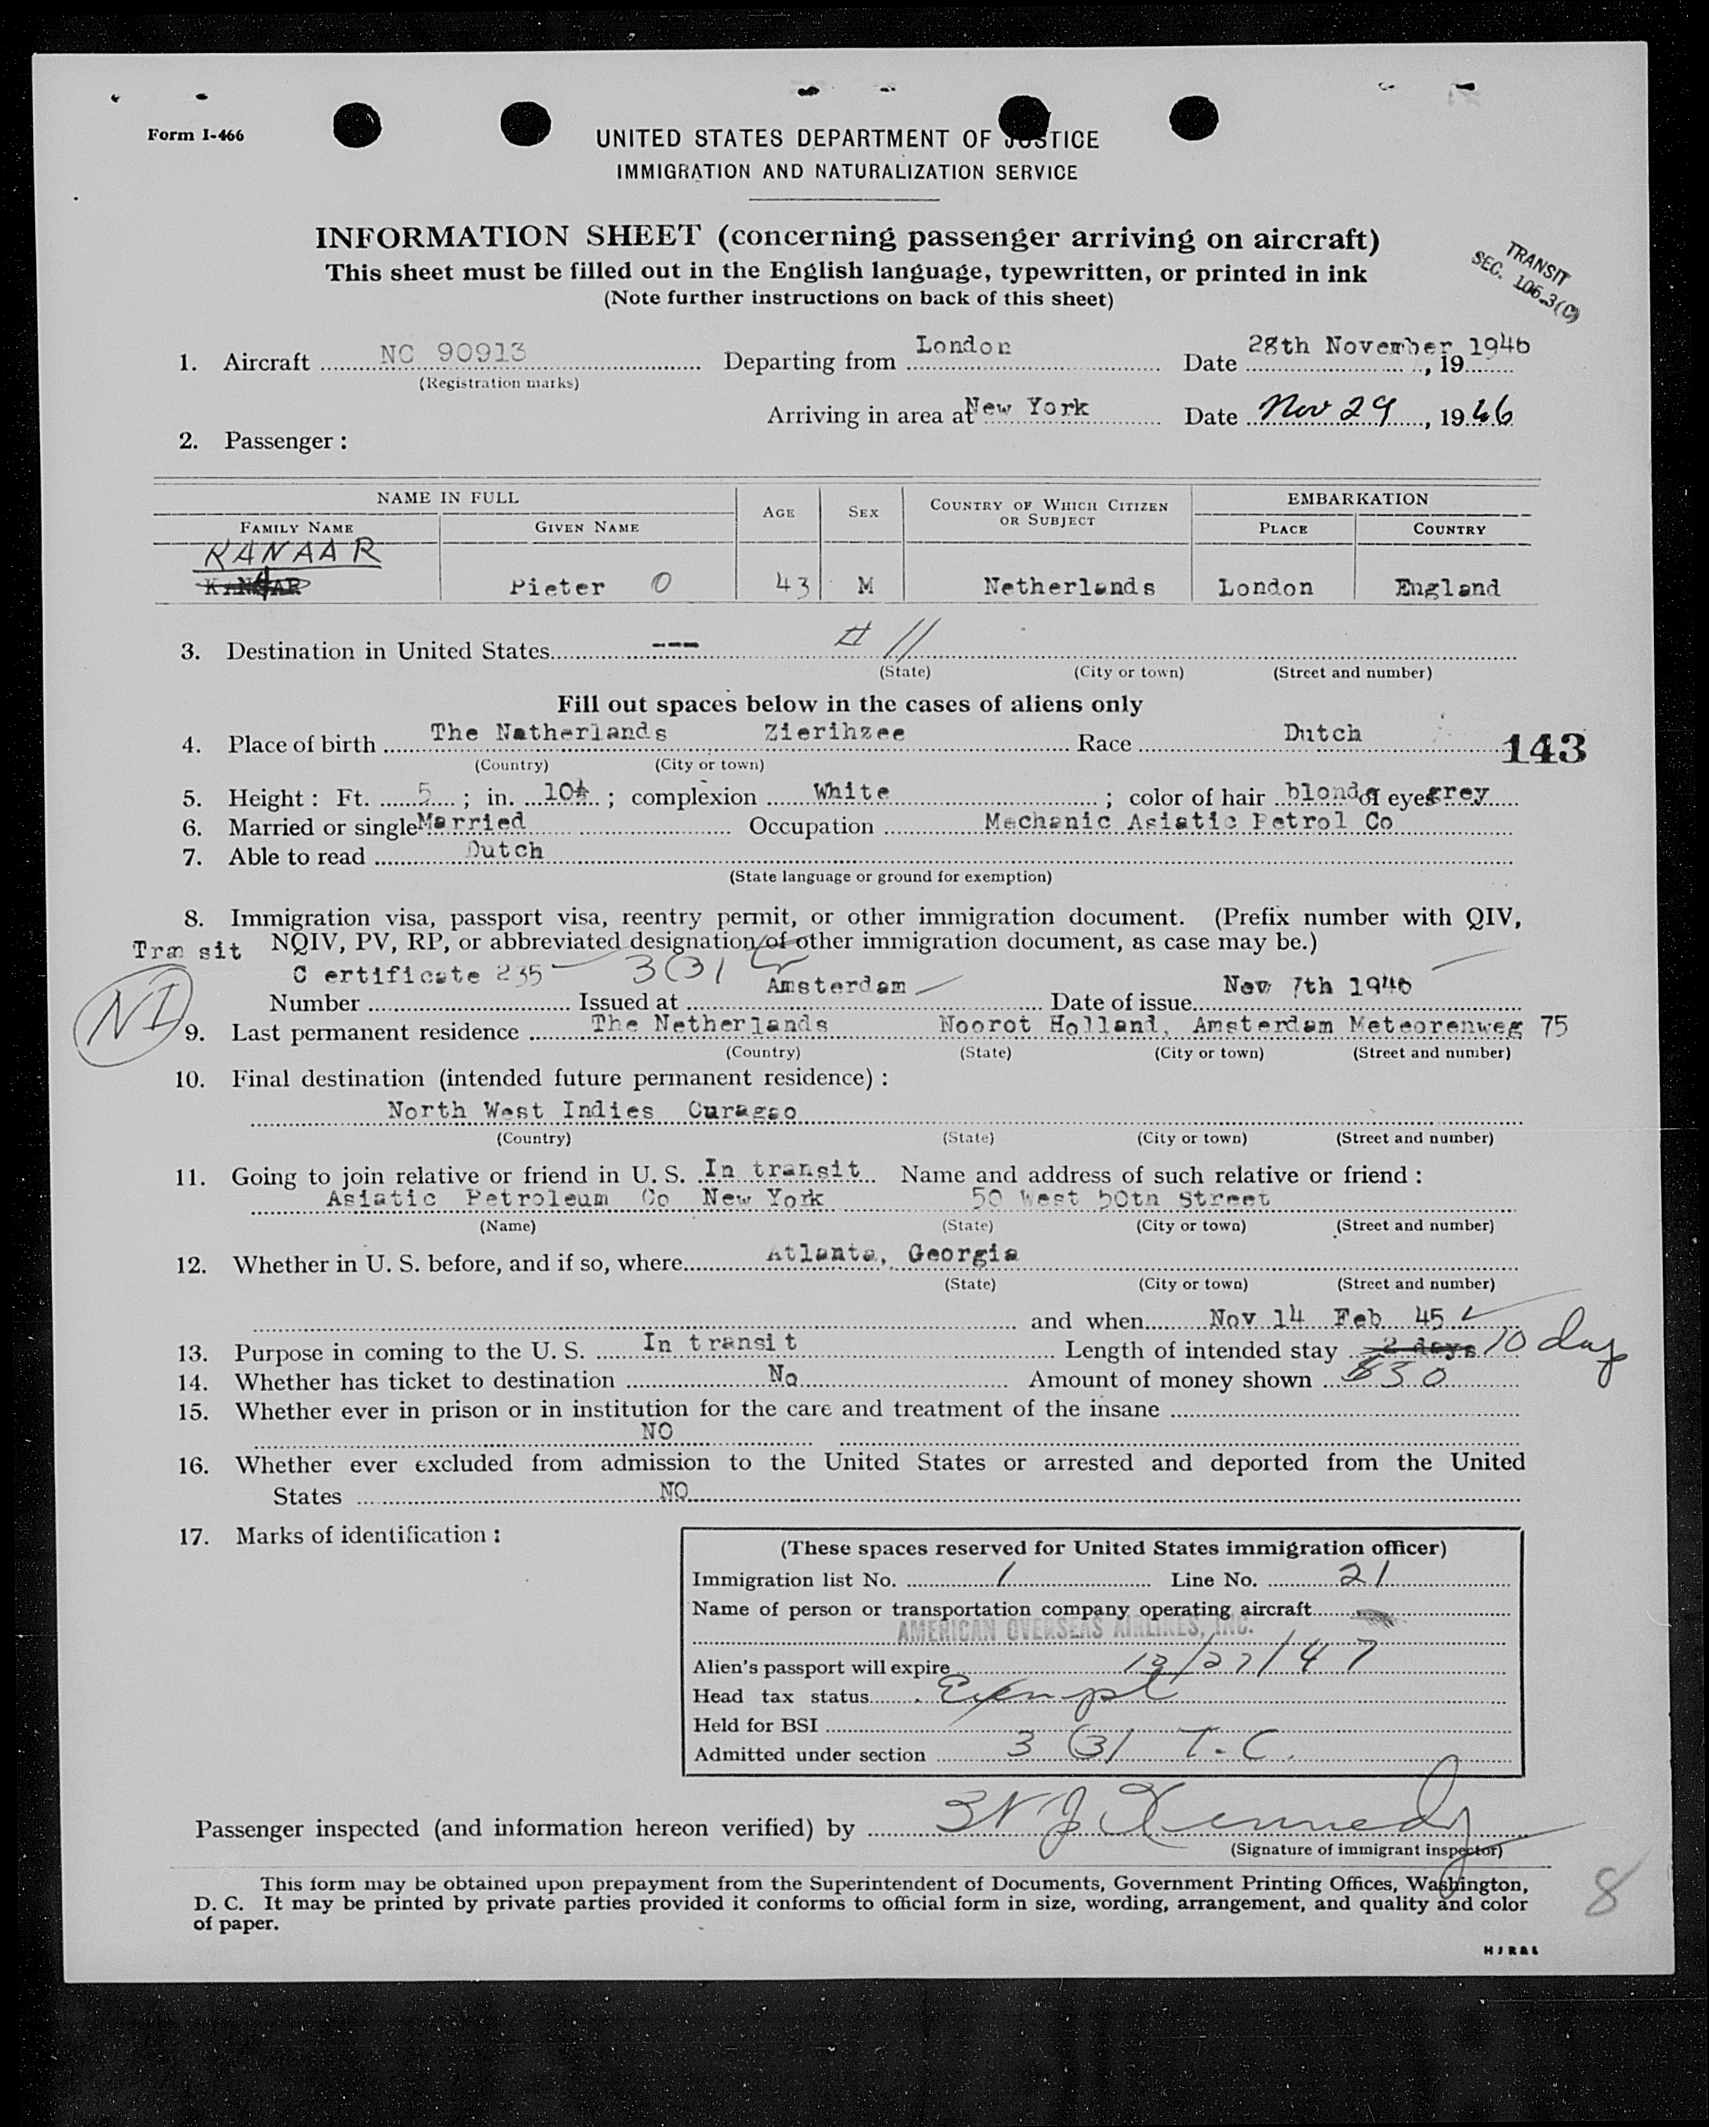 Form I-466
UNITED STATES DEPARTMENT OF JUSTICE
IMMIGRATION AND NATURALIZATION SERVICE
INFORMATION SHEET (concerning passenger arriving on aircraft)
This sheet must be filled out in the English language, typewritten, or printed in ink
(Note further instructions on back of this sheet)
TRANSIT
SEC. 106.3(C)
1. Aircraft NC 90913 Departing from London Date 28th November, 1946
(Registration marks)
Arriving in area at New York Date Nov 29, 1946
2. Passenger:
NAME IN FULL AGE SEX COUNTRY OF WHICH CITIZEN OR SUBJECT EMBARKATION
FAMILY NAME GIVEN NAME PLACE COUNTRY
KANAAR
Pieter O 43 M Netherlands London England
3. Destination in United States --- # 11
(State) (City or town) (Street and number)
Fill out spaces below in the cases of aliens only
4. Place of birth The Natherlands Zierihzee Race Dutch 143
(Country) (City or town)
5. Height: Ft. 5; in. 10½; complexion White; color of hair blond of eyes grey
6. Married or single Married Occupation Mechanic Asiatic Petrol Co
7. Able to read Dutch
(State language or ground for exemption)
8. Immigration visa, passport visa, reentry permit, or other immigration document. (Prefix number with QIV,
Tra sit NQIV, PV, RP, or abbreviated designation of other immigration document, as case may be.)
C ertificate 235 3(3)
Number Issued at Amsterdam Date of issue Nov 7th 1946
NI
9. Last permanent residence The Netherlands Noorot Holland, Amsterdam Meteorenweg 75
(Country) (State) (City or town) (Street and number)
10. Final destination (intended future permanent residence):
North West Indies Curagao
(Country) (State) (City or town) (Street and number)
11. Going to join relative or friend in U. S. In transit Name and address of such relative or friend:
Asiatic Petroleum Co New York 50 West 50th Street
(Name) (State) (City or town) (Street and number)
12. Whether in U. S. before, and if so, where Atlanta, Georgia
(State) (City or town) (Street and number)
and when Nov 14 Feb 45
13. Purpose in coming to the U. S. In transit Length of intended stay 2 days 10 days
14. Whether has ticket to destination No Amount of money shown $30
15. Whether ever in prison or in institution for the care and treatment of the insane
NO
16. Whether ever excluded from admission to the United States or arrested and deported from the United
States NO
17. Marks of identification:
(These spaces reserved for United States immigration officer)
Immigration list No. 1 Line No. 21
Name of person or transportation company operating aircraft
AMERICAN OVERSEAS AIRLINES, INC.
Alien's passport will expire 12/27/47
Head tax status Exempt
Held for BSI
Admitted under section 3 (3) T.C.
Passenger inspected (and information hereon verified) by Kennedy
(Signature of immigrant inspector)
This form may be obtained upon prepayment from the Superintendent of Documents, Government Printing Offices, Washington,
D. C. It may be printed by private parties provided it conforms to official form in size, wording, arrangement, and quality and color
of paper.
8
HJR&L